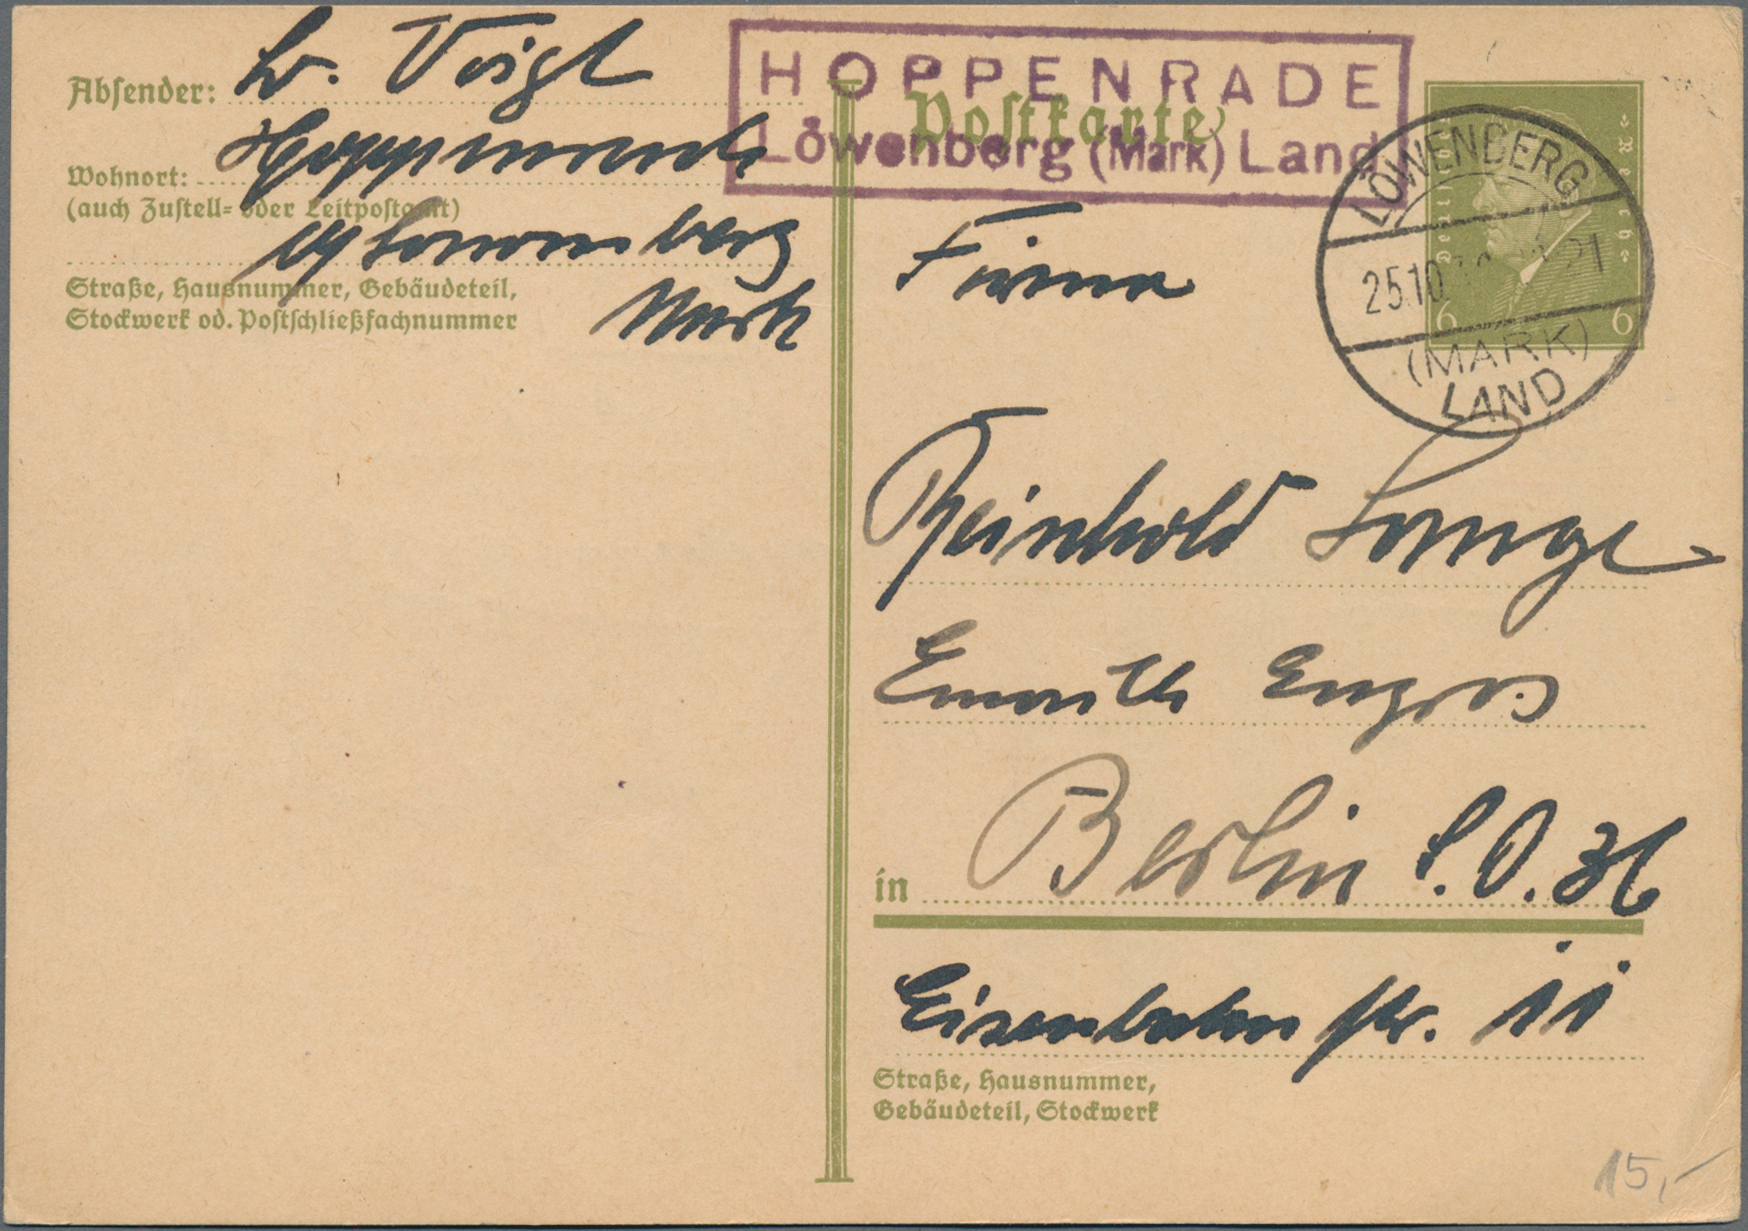 Absender: Lw. Voigt
Wohnort: Hoppenrade
(auch Zustell- oder Leitpostamt)
Löwenberg
Straße, Hausnummer, Gebäudeteil,
Stockwerk od. Postschließfachnummer
Mark
HOPPENRADE
Löwenberg (Mark) Land
Postkarte
Deutsches Reich
6 6
LÖWENBERG
25.10
(MARK)
LAND
Firma
Reinhold Lange
Engros
in Berlin S.O. 36
Eisenbahnstr. 11
Straße, Hausnummer,
Gebäudeteil, Stockwerk
15,-